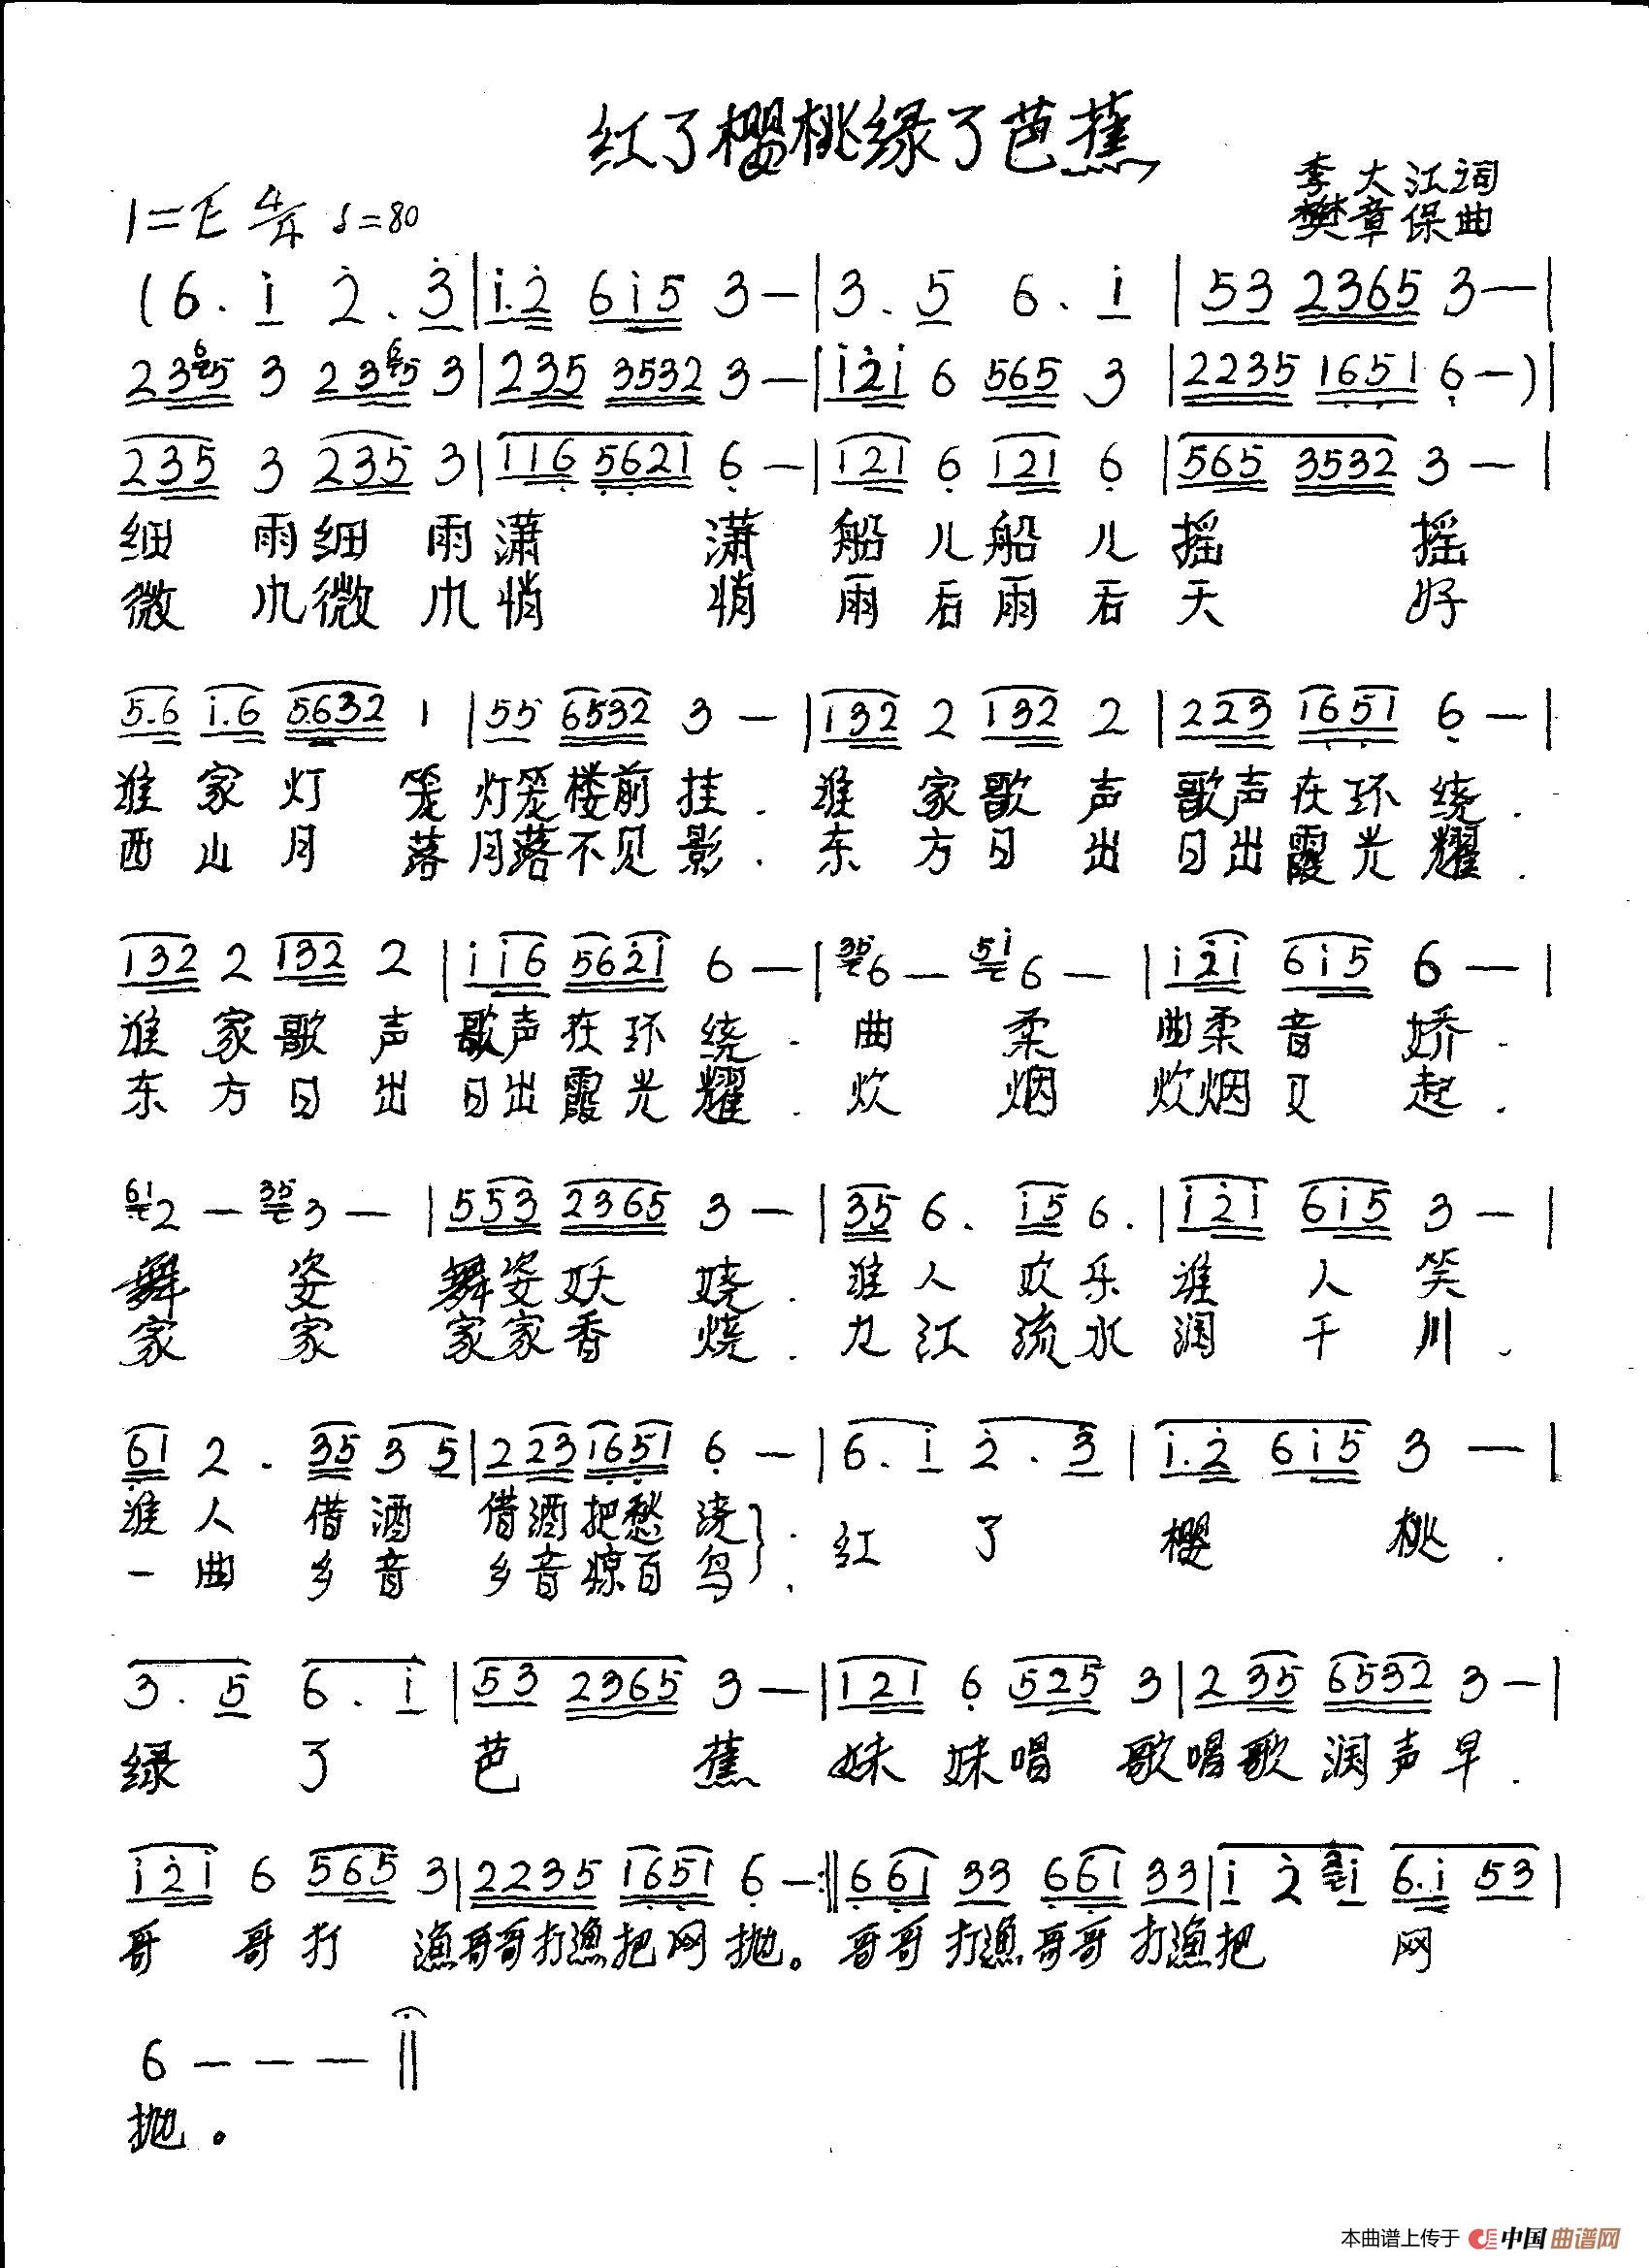 红了樱桃绿了芭蕉
李大江词
1=E 4/4 ♩=80
樊章保曲
(6. i 2. 3 | i.2 6i5 3 — | 3. 5 6. i | 53 2365 3 — |
23 65 3 23 65 3 | 235 3532 3 — | i2i 6 565 3 | 2235 1651 6 — ) |
235 3 235 3 | 116 5621 6 — | 121 6 121 6 | 565 3532 3 — |
细 雨细 雨潇 潇 船儿船儿摇 摇
微 爪微 爪悄 悄 雨后雨后天 好
5.6 i.6 5632 1 | 55 6532 3 — | 132 2 132 2 | 223 1651 6 — |
谁家灯 笼灯笼楼前挂. 谁 家歌声 歌声在环绕.
西山月 落月落不见影. 东 方日出 日出霞光耀.
132 2 132 2 | ii6 562i 6 — | 35 6 — 5i 6 — | i2i 6i5 6 — |
谁 家歌声 歌声在环绕. 曲 柔 曲柔音 娇.
东 方日出 日出霞光耀. 炊 烟 炊烟又 起.
61 2 — 35 3 — | 553 2365 3 — | 35 6. i5 6. | i2i 6i5 3 — |
舞 姿 舞姿妖 娆. 谁人 欢乐 谁 人 笑
家 家 家家香 烧. 九江 流水 润 千 川.
61 2. 35 3 5 | 223 1651 6 — | 6. i 2. 3 | i.2 6i5 3 — |
谁人 借酒 借酒把愁浇}. 红 了 樱 桃.
一曲 乡音 乡音惊百鸟}. 
3. 5 6. i | 53 2365 3 — | 121 6 525 3 | 2 35 6532 3 — |
绿 了 芭 蕉 妹 妹唱 歌唱歌润声早.
i2i 6 565 3 | 2235 1651 6 — :‖ 661 33 661 33 | i 2 2i 6.i 53 |
哥 哥打 渔哥哥打渔把网抛。哥哥打渔哥哥打渔把 网
6 — — — ‖
抛。
本曲谱上传于 中国曲谱网